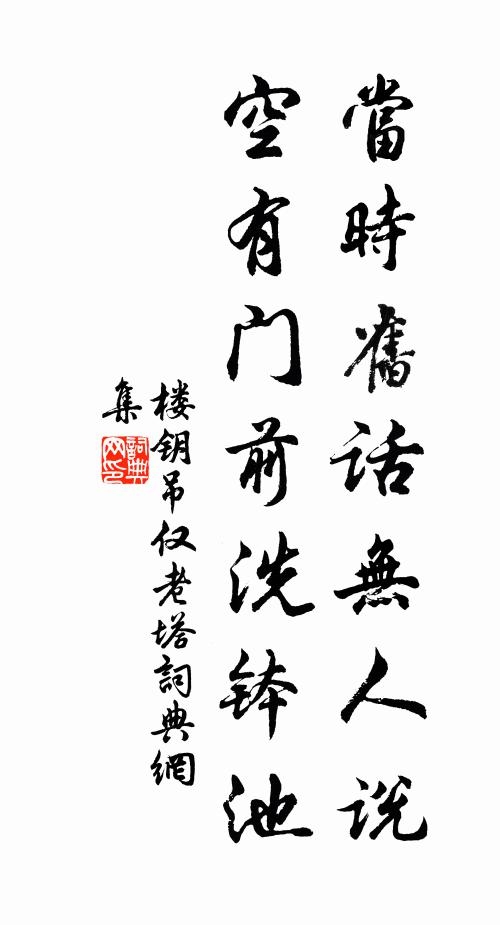 當時舊話無人說
空有門前洗鉢池
楼钥吊仅老塔詞典網
集
詞典網印